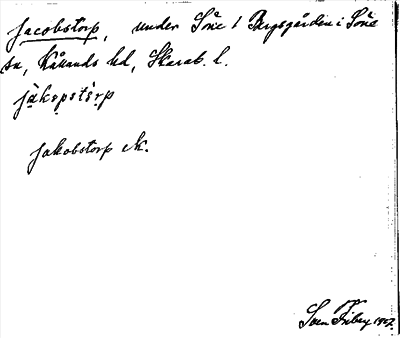 Jacobstorp, under Söne / Bergsgården i Söne
sn, Kållands hd, Skarab. l.
jàkɔpstɔ̀rp
Jakobstorp ek.
Sven Friberg